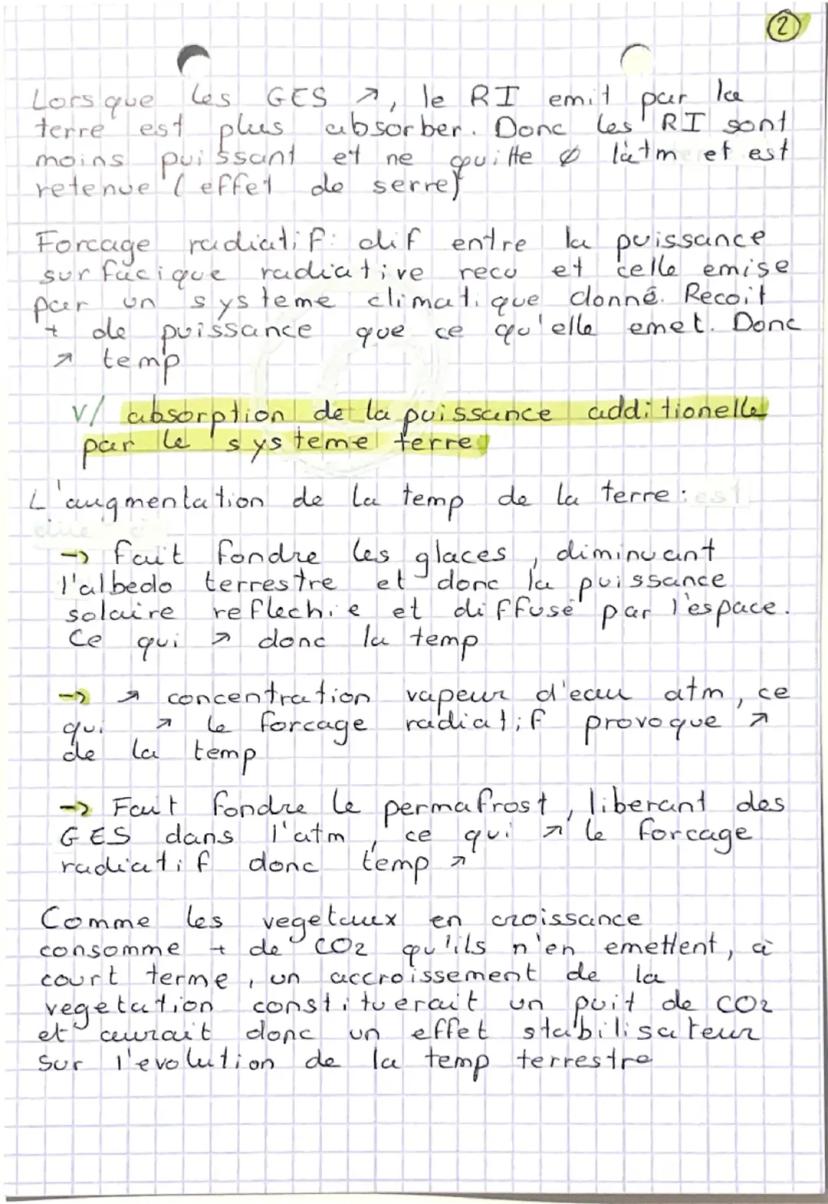 2
Lorsque les GES ↗, le RI emit par la
terre est plus absorber. Donc les RI sont
moins puissant et ne quitte ∅ l'atm et est
retenue (effet de serre)
Forcage radiatif: dif entre la puissance
surfacique radiative recu et celle emise
par un systeme climatique donné. Recoit
+ de puissance que ce qu'elle emet. Donc
↗ temp
V/ absorption de la puissance additionelle
par le systeme terre
L'augmentation de la temp de la terre : est
→ fait fondre les glaces, diminuant
l'albedo terrestre et donc la puissance
solaire reflechie et diffusé par l'espace.
Ce qui ↗ donc la temp
→ ↗ concentration vapeur d'eau atm, ce
qui ↗ le forcage radiatif provoque ↗
de la temp
→ Fait fondre le permafrost, liberant des
GES dans l'atm, ce qui ↗ le forcage
radiatif donc temp ↗
Comme les vegetaux en croissance
consomme + de CO2 qu'ils n'en emettent, à
court terme, un accroissement de la
vegetation constituerait un puit de CO2
et aurait donc un effet stabilisateur
sur l'evolution de la temp terrestre